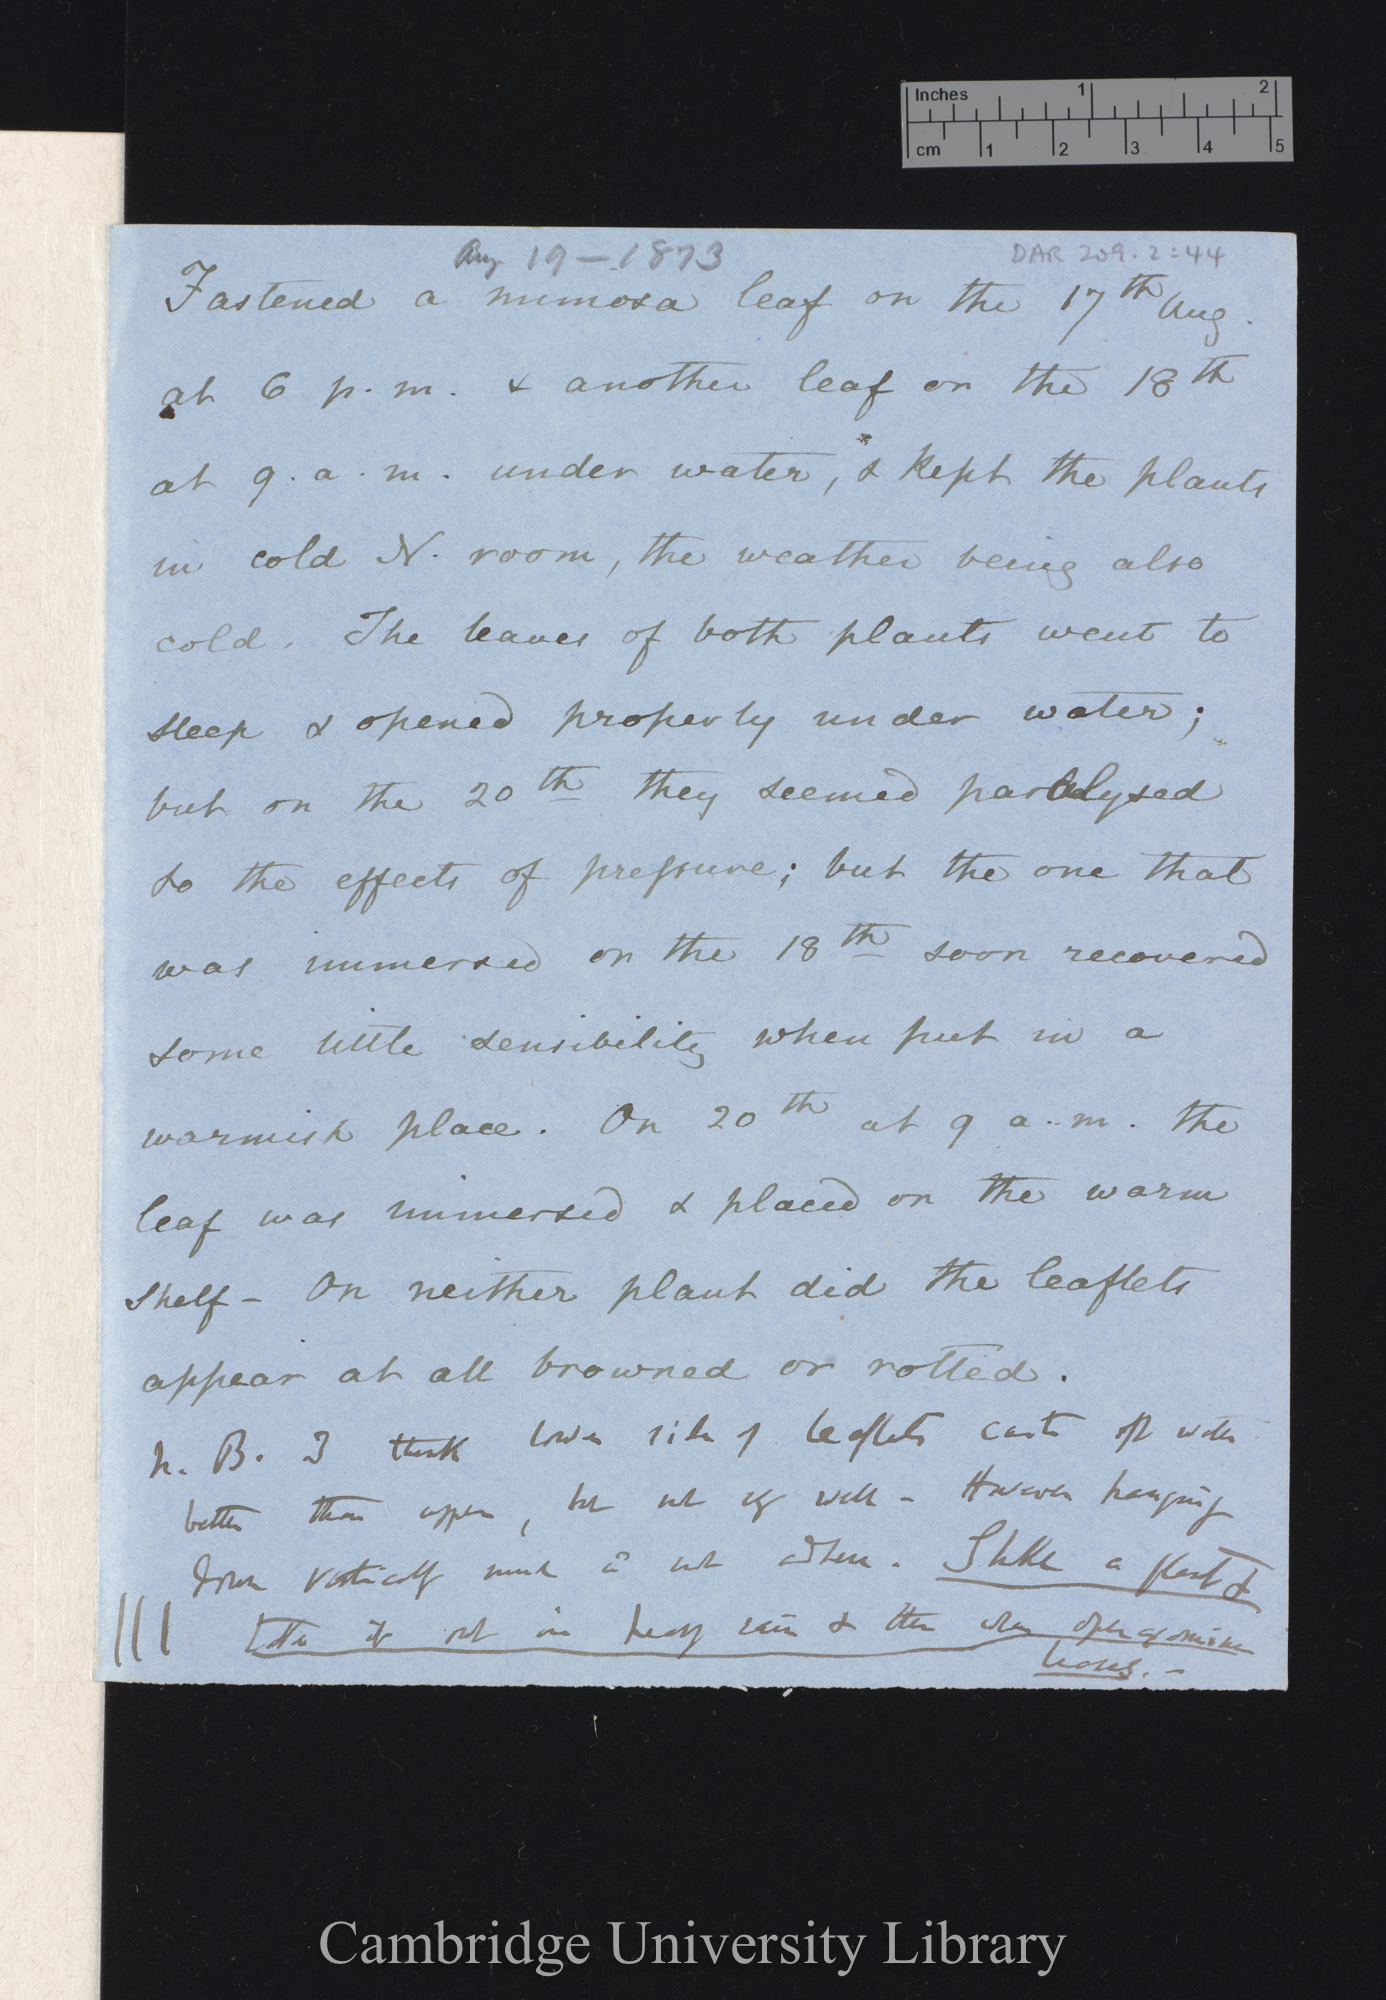 Inches 1 2
cm 1 2 3 4 5
Aug 19 — 1873 DAR 209.2:44
Fastened a mimosa leaf on the 17th Aug.
at 6 p.m. & another leaf on the 18th
at 9. a.m. under water, & kept the plants
in cold N. room, the weather being also
cold. The leaves of both plants went to
sleep & opened properly under water;
but on the 20th they seemed paralysed
to the effects of pressure; but the one that
was immersed on the 18th soon recovered
some little sensibility when put in a
warmish place. On 20th at 9 a.m. the
leaf was immersed & placed on the warm
shelf – On neither plant did the leaflets
appear at all browned or rotted.
N. B. I think lower side of leaflets casts off water
better than upper, but not very well – However hanging
down vertically much d not adhere. Shake a plant &
it out in heavy rain & then when
leaves. –
Cambridge University Library